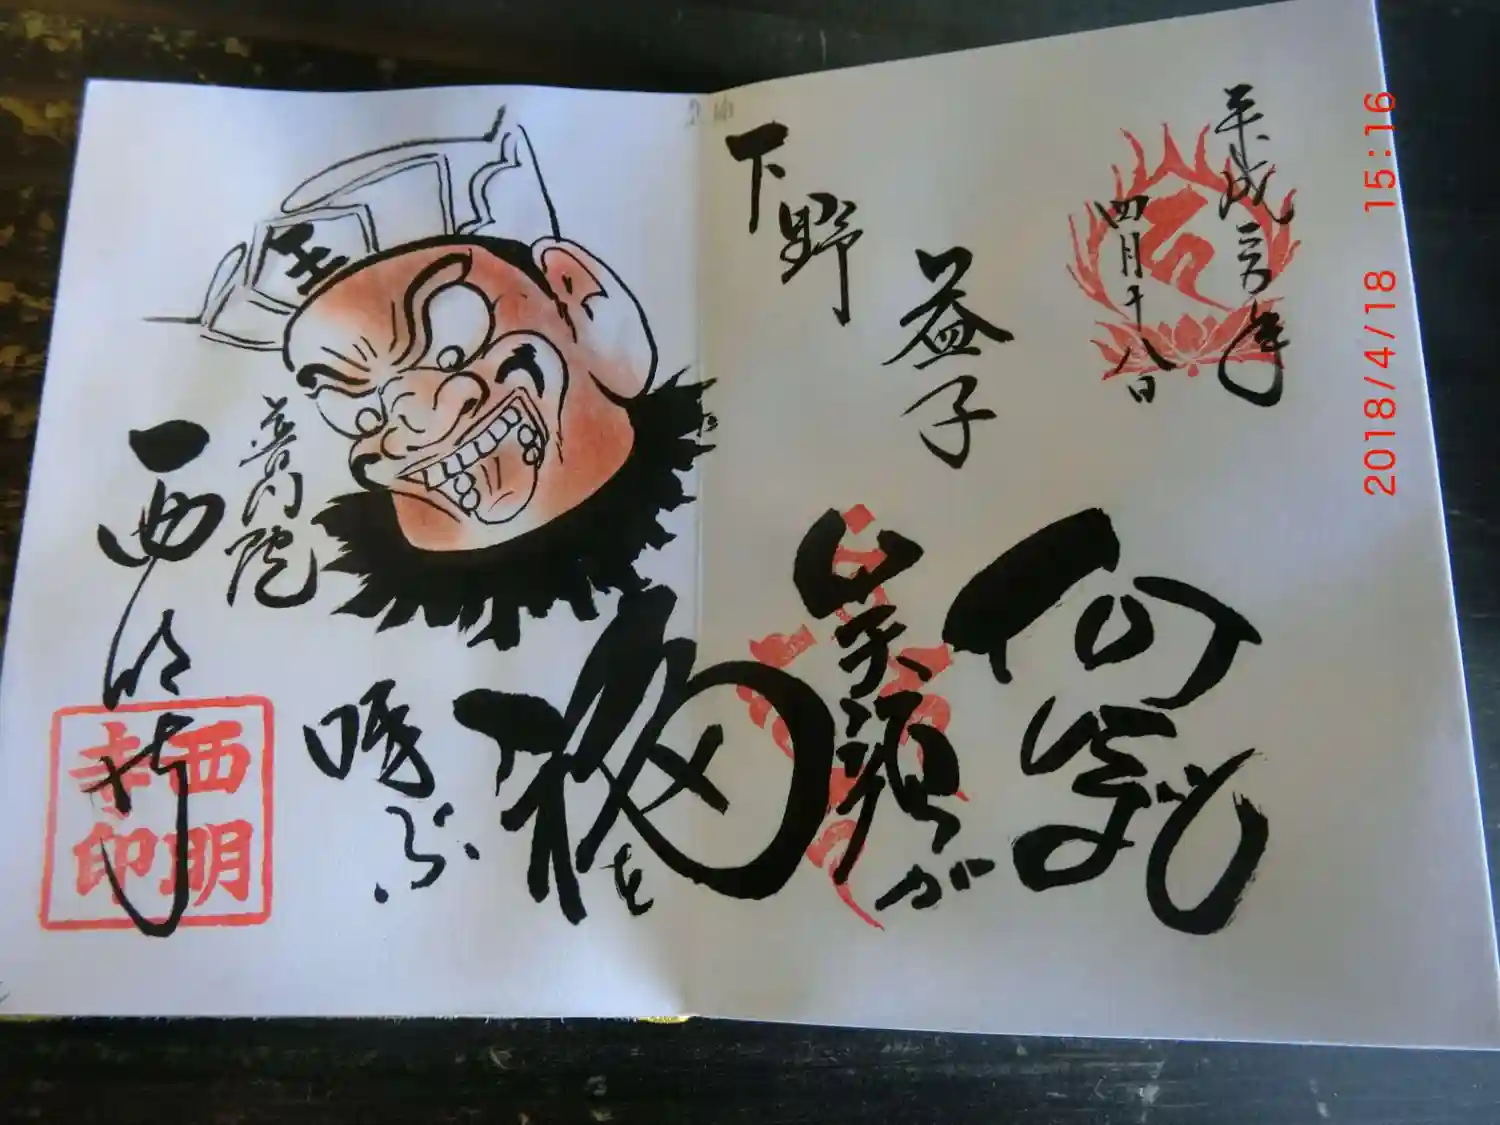 平成三十年
四月十八日
下野
益子
何気ない
笑顔が
福を
呼ぶ
王
普門院
西明寺
西明
寺印
2018/4/18 15:16